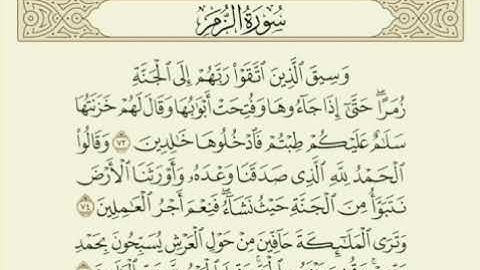 سُورَةُ الزُّمَر
وَسِيقَ الَّذِينَ اتَّقَوْا رَبَّهُمْ إِلَى الْجَنَّةِ
زُمَرًا ۖ حَتَّىٰ إِذَا جَاءُوهَا وَفُتِحَتْ أَبْوَابُهَا وَقَالَ لَهُمْ خَزَنَتُهَا
سَلَامٌ عَلَيْكُمْ طِبْتُمْ فَادْخُلُوهَا خَالِدِينَ ٧٣ وَقَالُوا
الْحَمْدُ لِلَّهِ الَّذِي صَدَقَنَا وَعْدَهُ وَأَوْرَثَنَا الْأَرْضَ
نَتَبَوَّأُ مِنَ الْجَنَّةِ حَيْثُ نَشَاءُ ۖ فَنِعْمَ أَجْرُ الْعَامِلِينَ ٧٤
وَتَرَى الْمَلَائِكَةَ حَافِّينَ مِنْ حَوْلِ الْعَرْشِ يُسَبِّحُونَ بِحَمْدِ